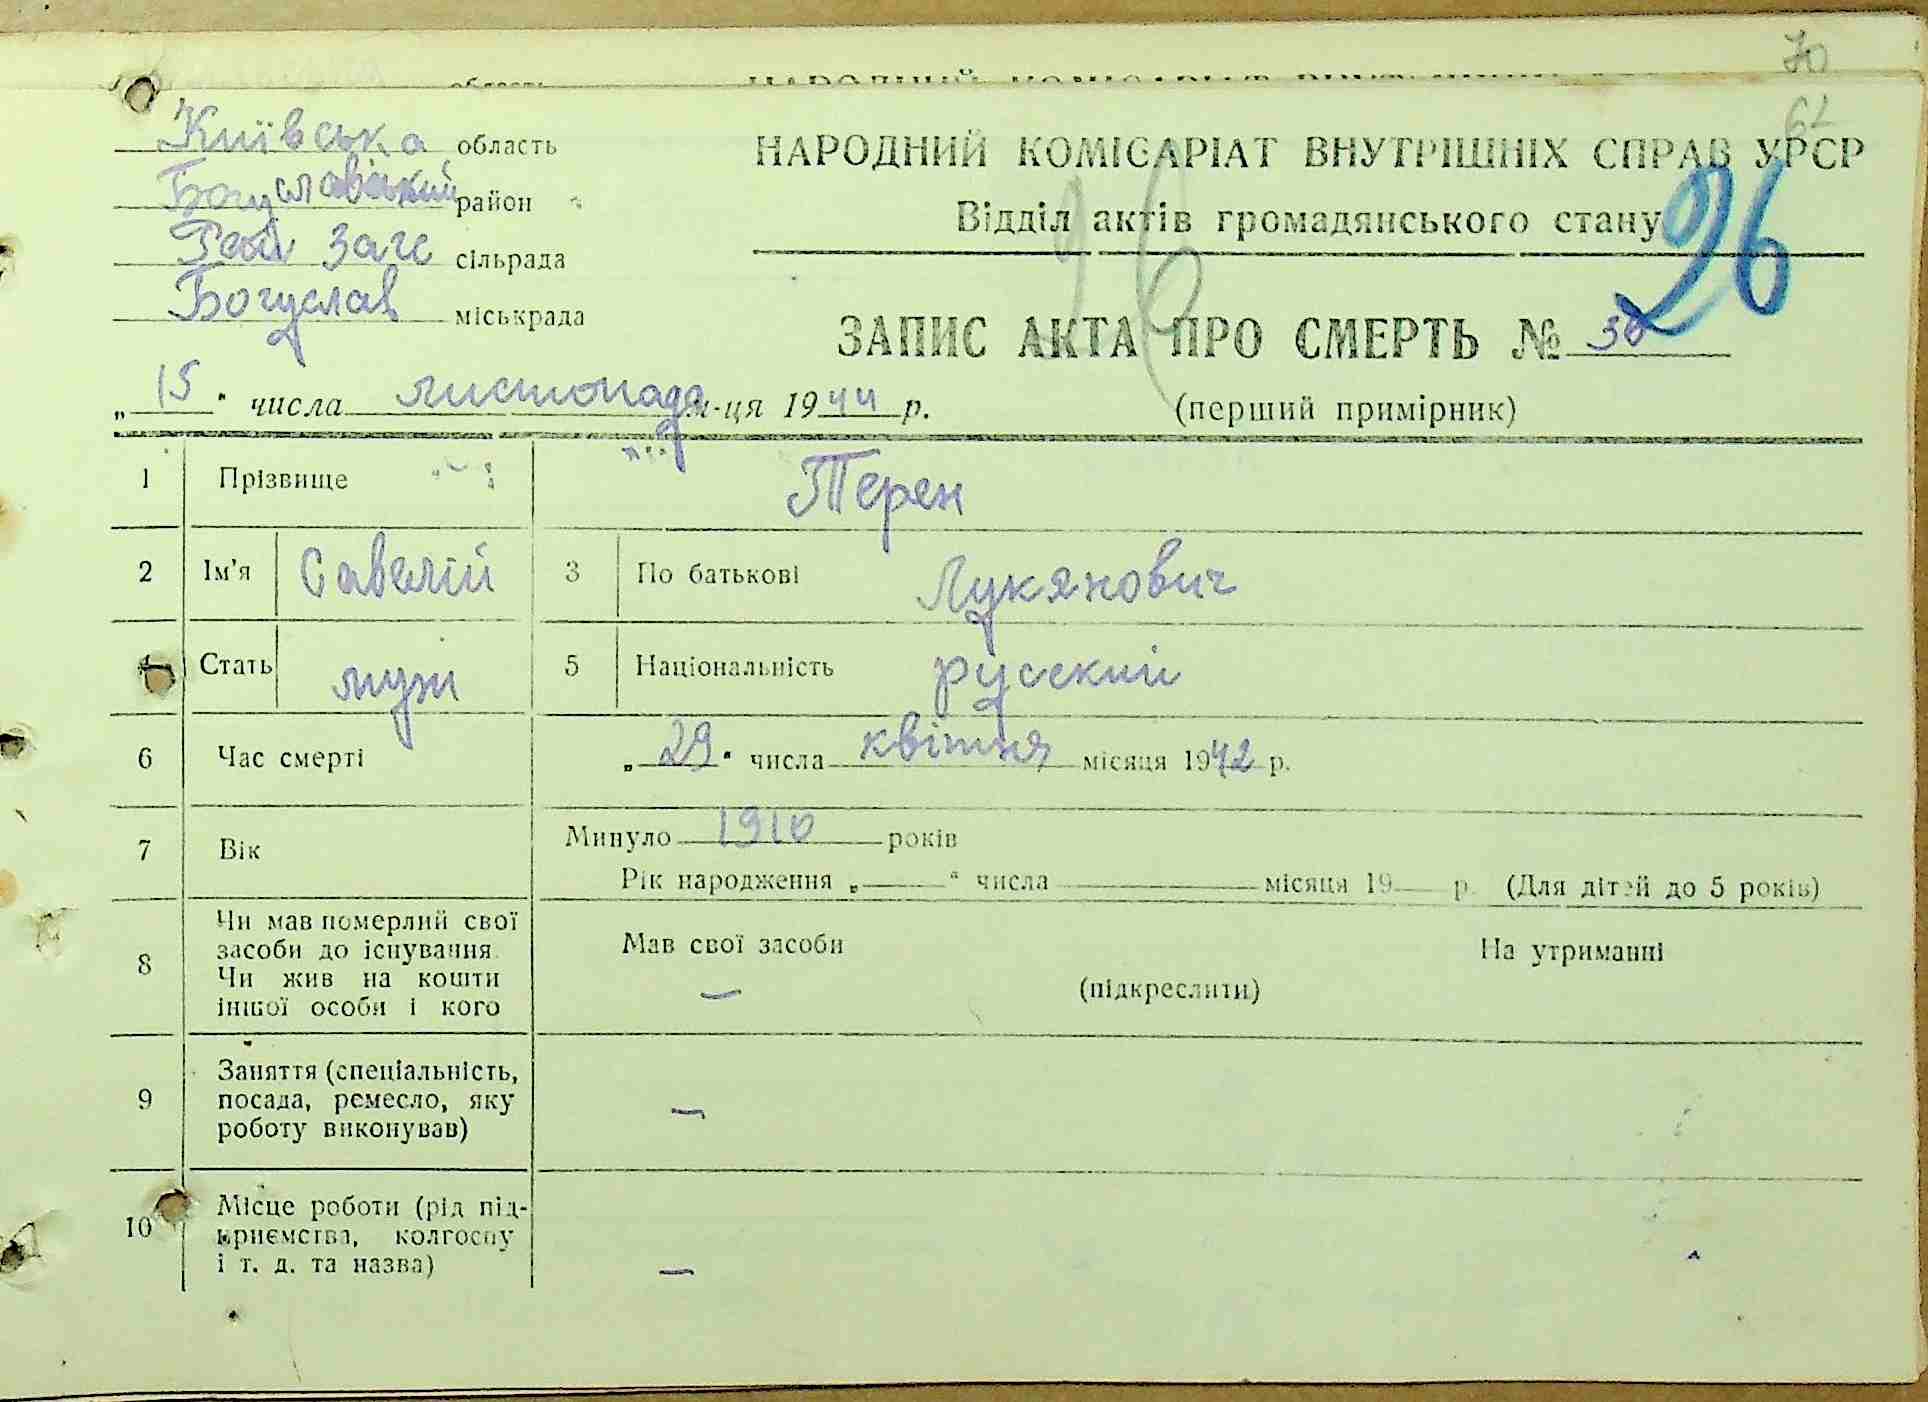 70
62
Київська область
НАРОДНИЙ КОМІСАРІАТ ВНУТРІШНІХ СПРАВ УРСР
Богуславський район
Відділ актів громадянського стану
26
26
Рай Загс сільрада
Богуслав міськрада
ЗАПИС АКТА ПРО СМЕРТЬ №
„15" числа листопада м-ця 1944 р.
(перший примірник)
1 Прізвище Терен
2 Ім'я Савелій 3 По батькові Лукянович
4 Стать муж 5 Національність русский
6 Час смерті „29" числа квітня місяця 1942 р.
7 Вік Минуло 1910 років
Рік народження „ " числа місяця 19 р. (Для дітей до 5 років)
8 Чи мав померлий свої
засоби до існування.
Чи жив на кошти
іншої особи і кого
Мав свої засоби На утриманні
– (підкреслити)
9 Заняття (спеціальність,
посада, ремесло, яку
роботу виконував)
–
10 Місце роботи (рід під-
приємства, колгоспу
і т. д. та назва)
–